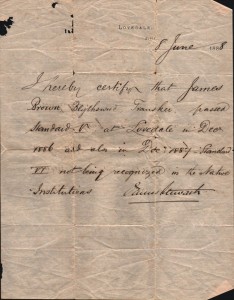 LOVEDALE,
8 June 1888
I hereby certify that James
Brown, Blythswood Transkei passed
Standard V at Lovedale in Dec
1886 and also in Dec 1887 Standard
VI not being recognized in the Native
Institutions